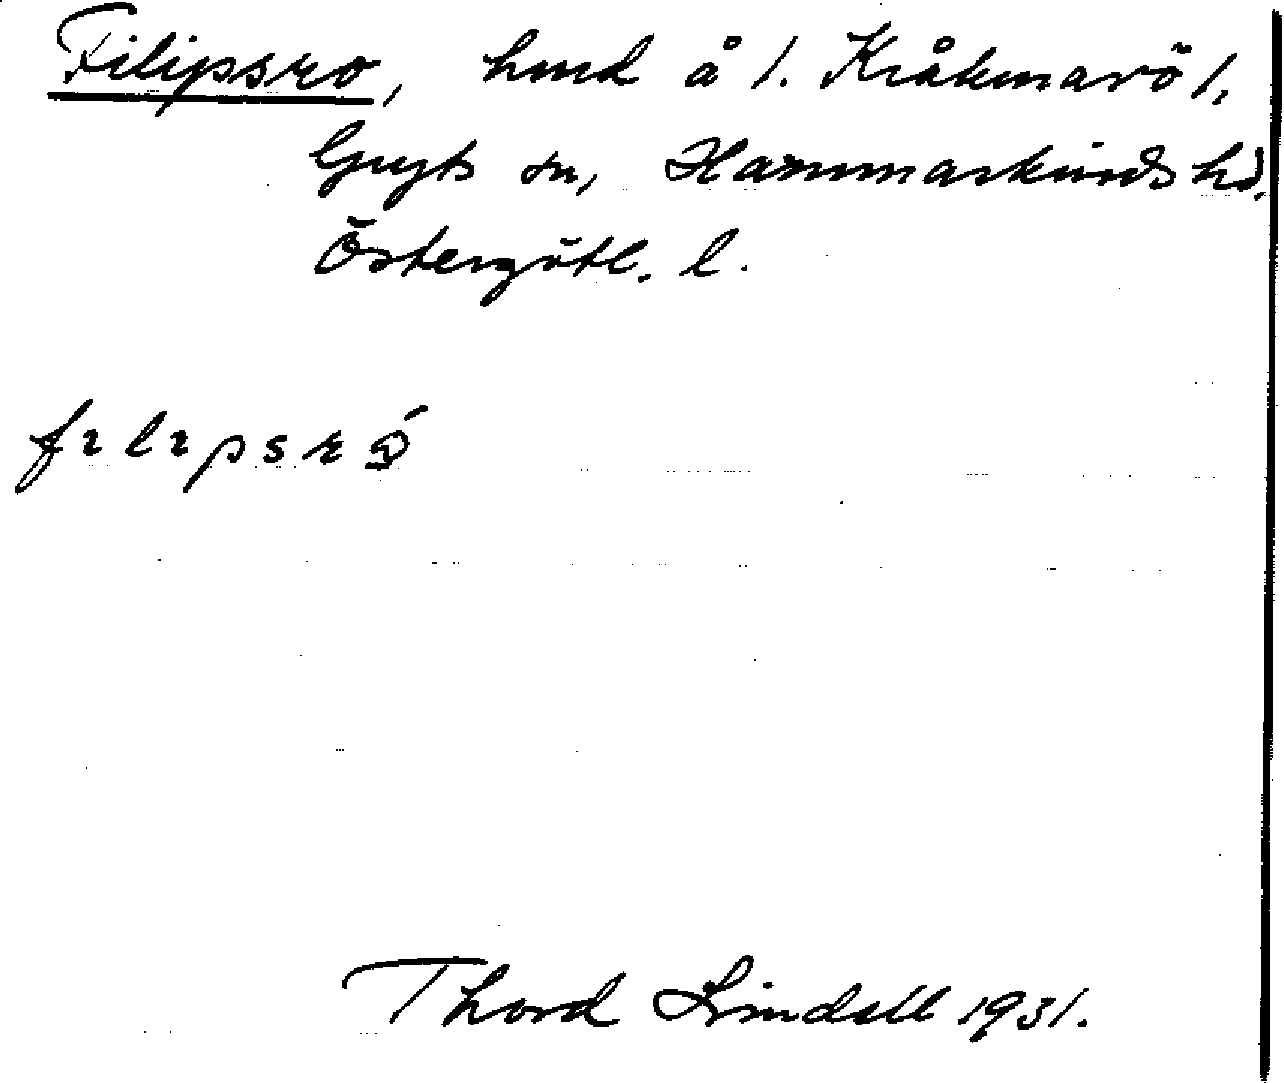 Filipsro, hmd å 1. Kråkmarö 1,
Gryts sn, Hammarkinds hd.
Östergötl. l.
Thord Lindell 1931.